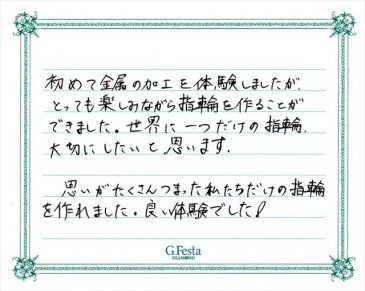 初めて金属の加工を体験しましたが、
とっても楽しみながら指輪を作ることが
できました。世界に一つだけの指輪、
大切にしたいと思います。
思いがたくさんつまった私たちだけの指輪
を作れました。良い体験でした!
G.Festa
DIAMOND